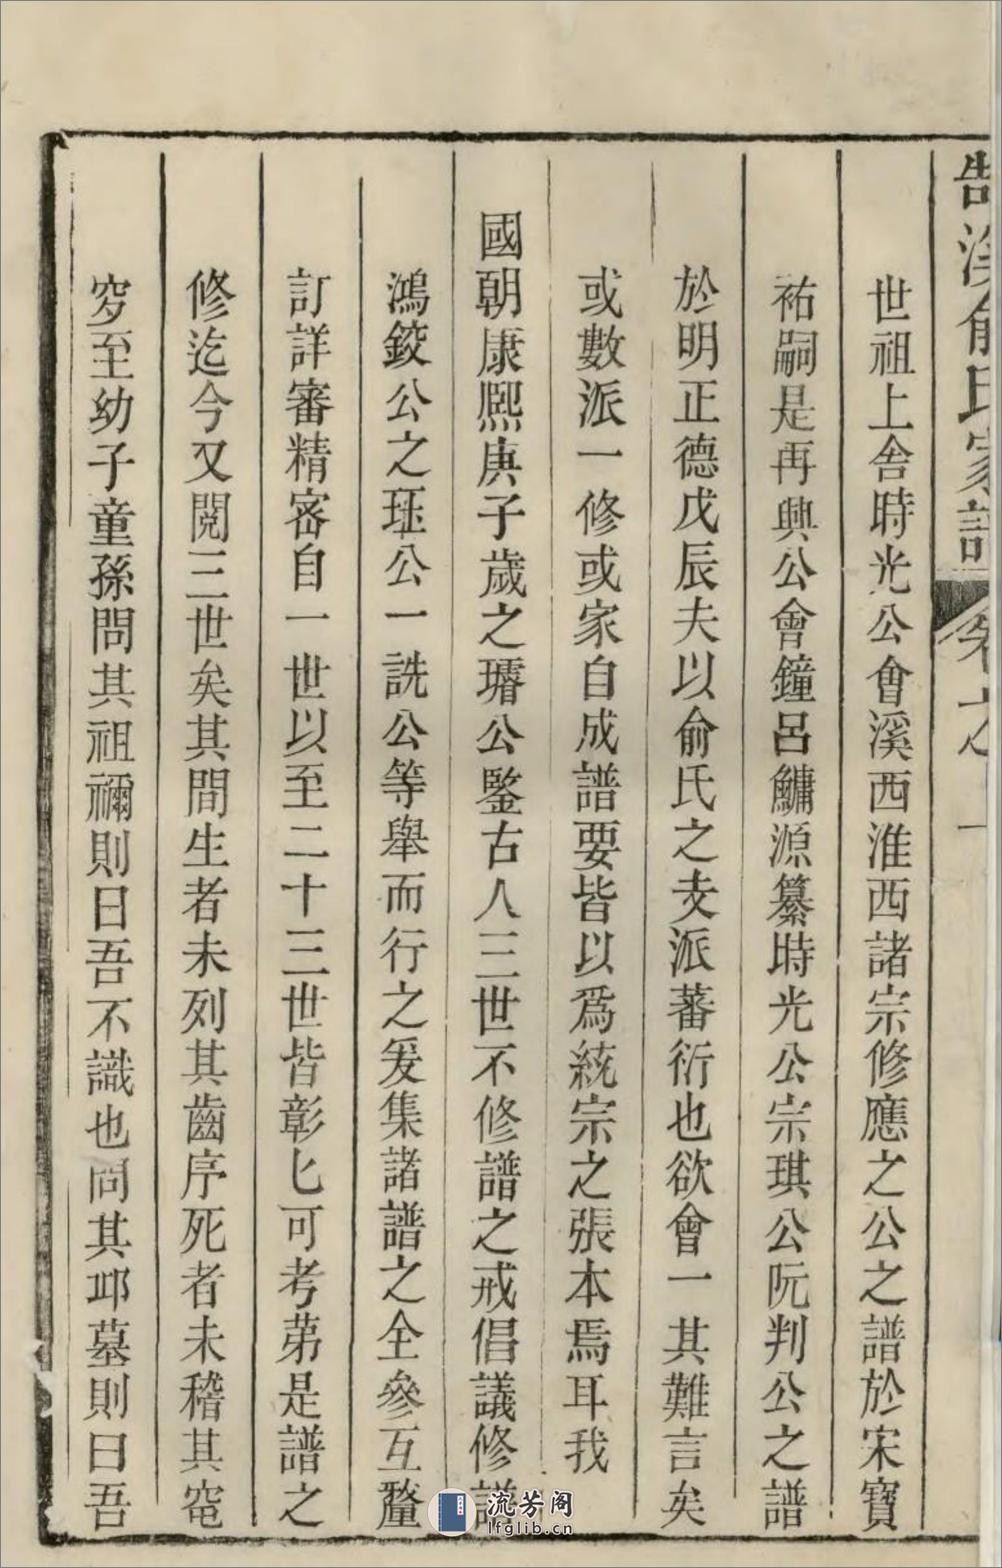 俞氏家譜 卷之一
世祖上舍時光公會溪西淮西諸宗修應之公之譜於宋寶
祐嗣是再興公會鐘呂鱅源纂時光公宗琪公阮判公之譜
於明正德戊辰夫以俞氏之支派蕃衍也欲會一其難言矣
或數派一修或家自成譜要皆以為統宗之張本焉耳我
國朝康熙庚子歲之璿公鑒古人三世不修譜之戒倡議修譜
鴻鉸公之珏公一詵公等舉而行之爰集諸譜之全參互釐
訂詳審精密自一世以至二十三世皆彰匕可考苐是譜之
修迄今又閱三世矣其間生者未列其齒序死者未稽其窀
穸至幼子童孫問其祖禰則曰吾不識也問其邱墓則曰吾
流芳阁
lfglib.cn